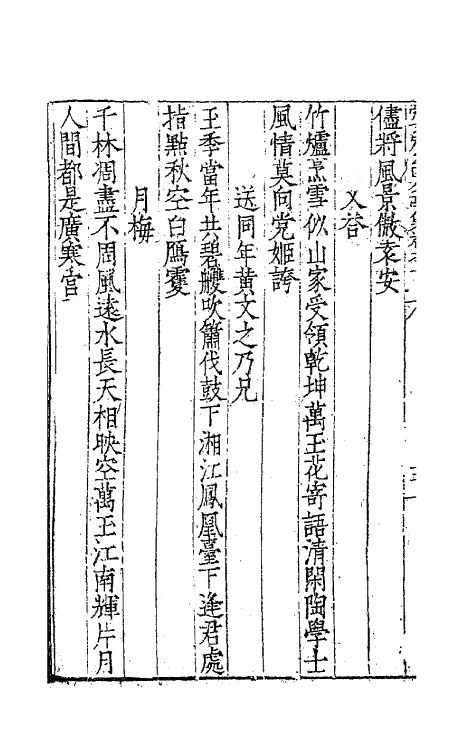 儘將風景傲袁安
又荅
竹爐烹雪似山家受領乾坤萬玉花寄語清閑陶學士
風情莫向党姬誇
送同年黃文之乃兄
玉季當年共碧艭吹簫伐鼓下湘江鳳凰臺下逢君處
指點秋空白鴈䨇
月梅
千林凋盡不周風遠水長天相映空萬玉江南輝片月
人間都是廣寒宮